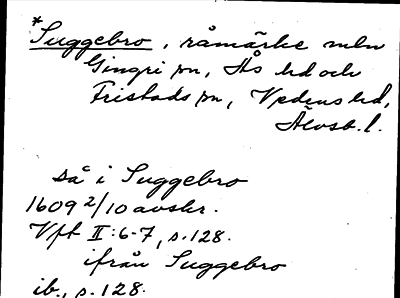 *Suggebro, råmärke mln
Gingri sn, Ås hd och
Fristads sn, Vedens hd,
Älvsb. l.
så i Suggebro
1609 2/10 avskr.
Vft II:6-7, s.128.
ifrån Suggebro
ib., s.128.